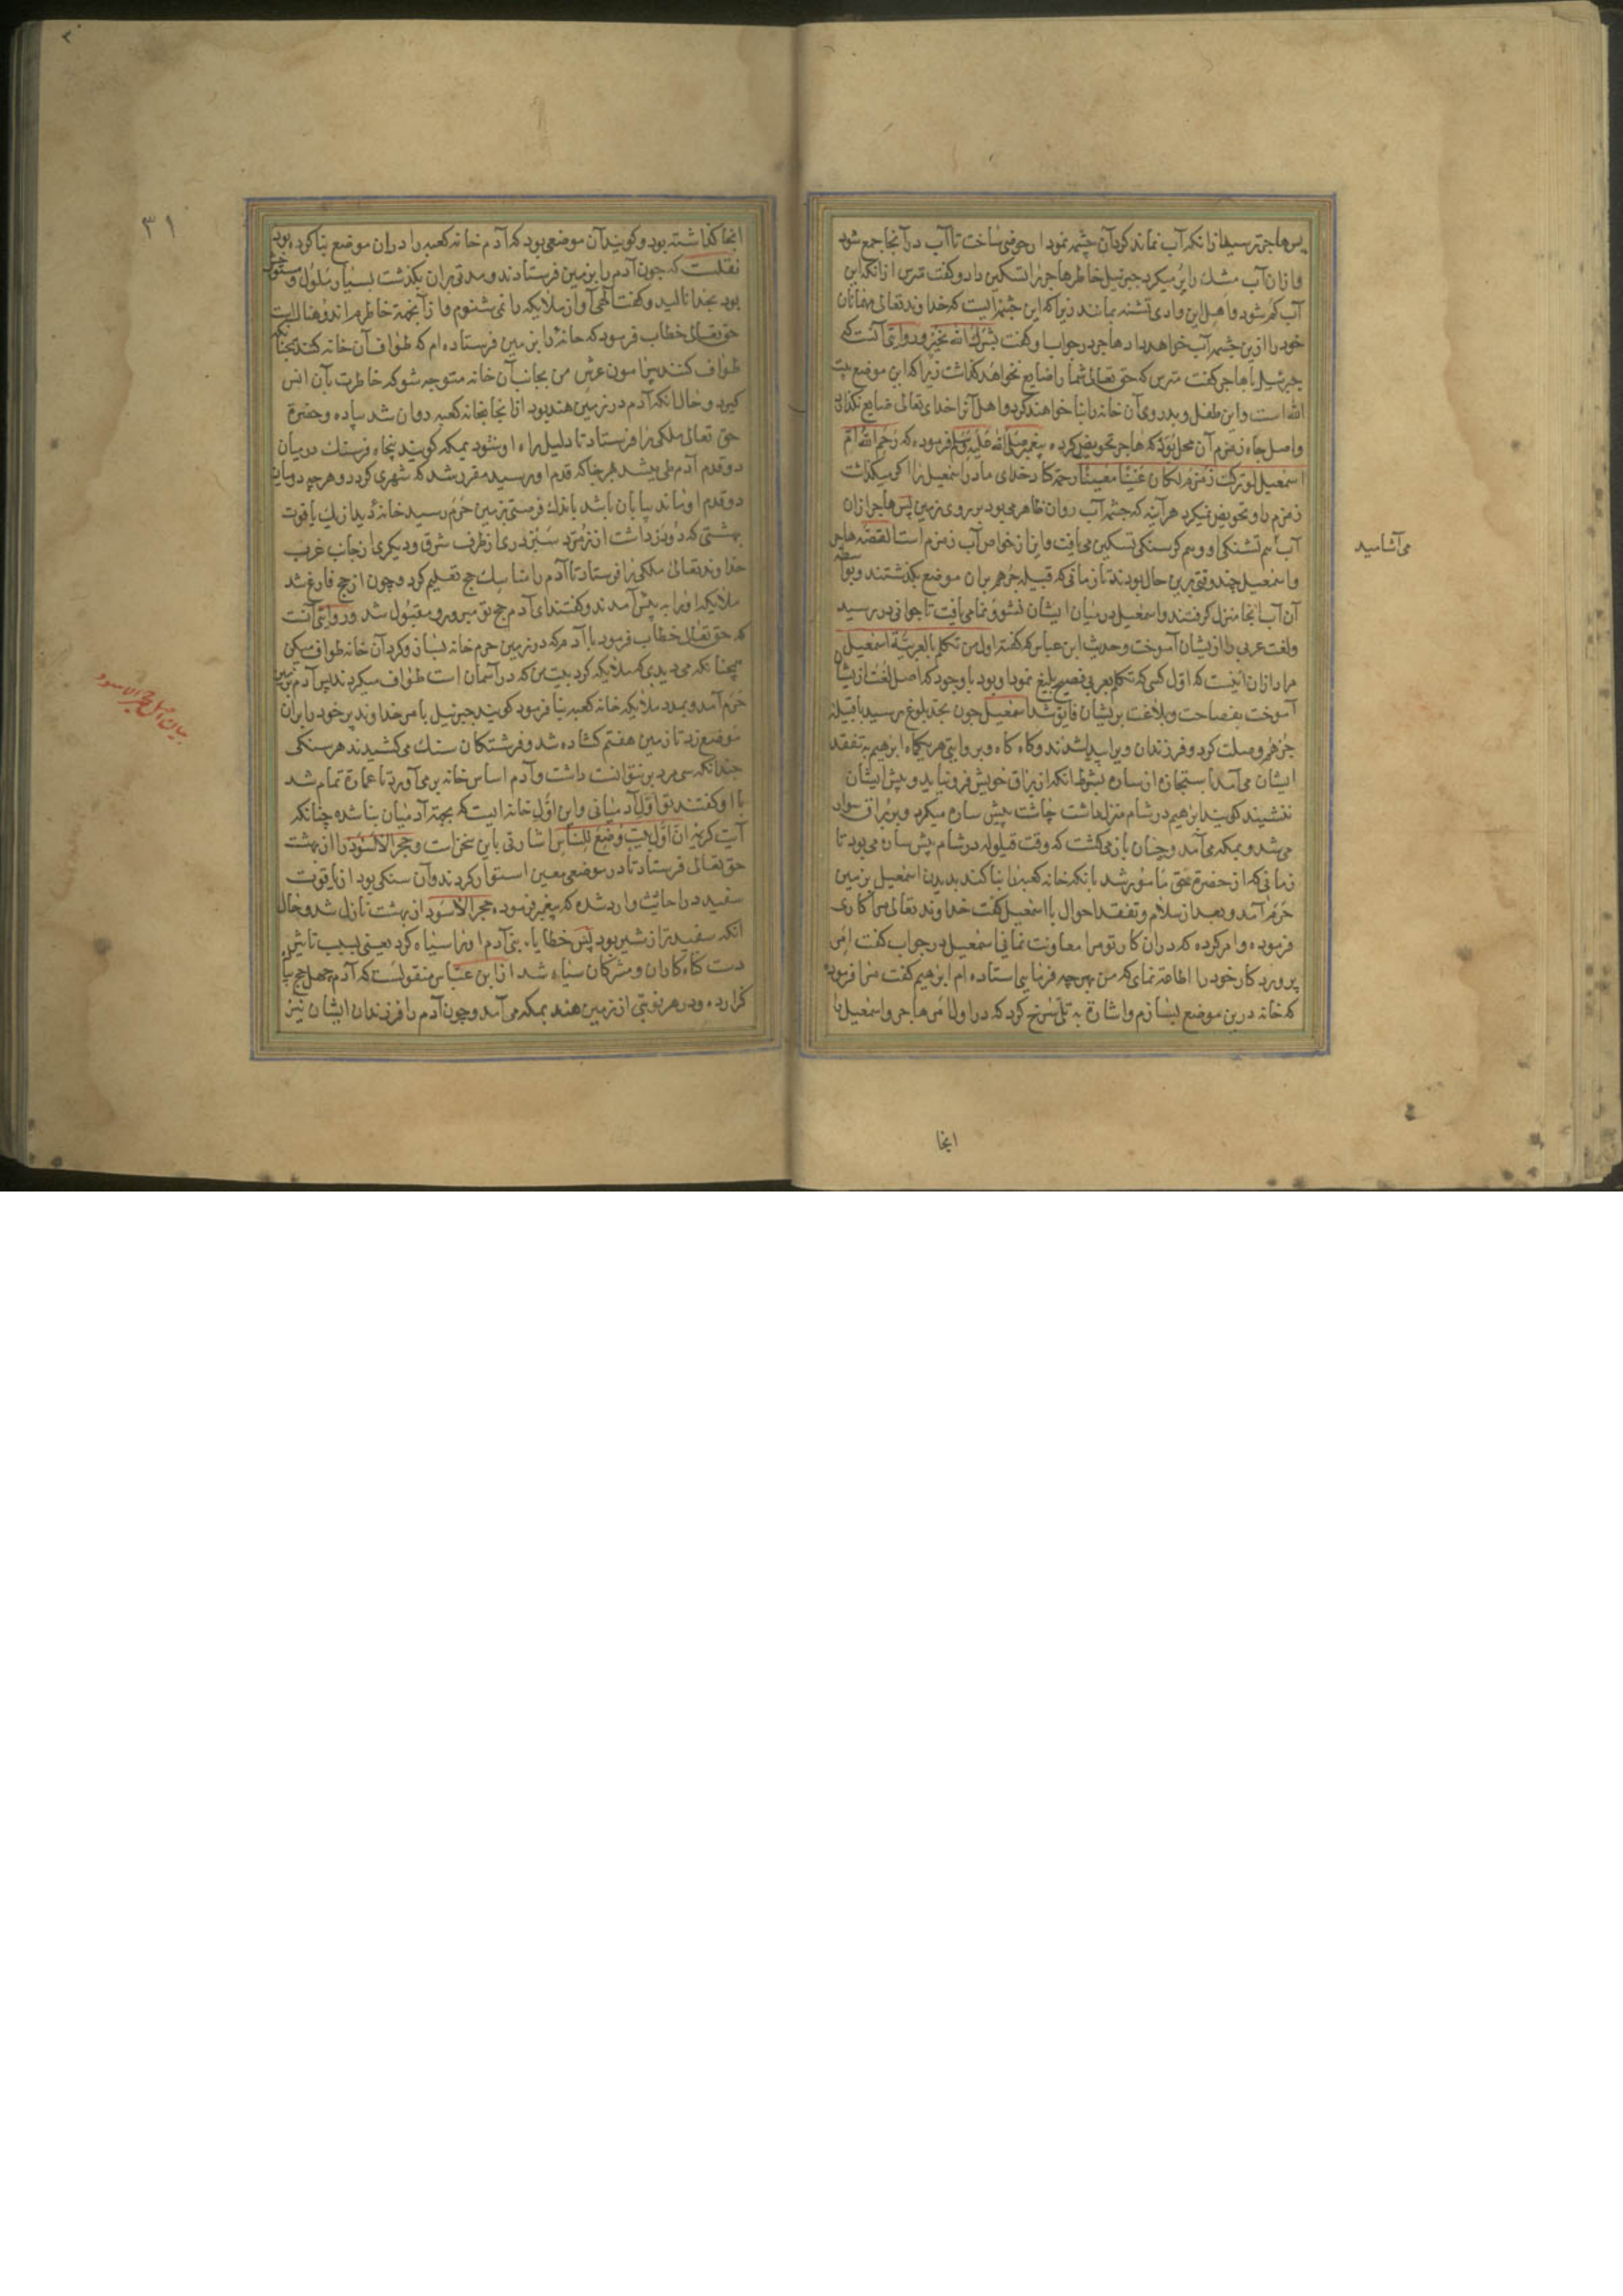 پس هاجر ترسید از انکه آب نماند کرد آن چشمه نمودار حوضی ساخت تا آب در آنجا جمع شود
و ازان آب مشک را پر میکرد جبرئیل خاطر هاجر را تسکین داد و کفت مترس ازانکه این
آب کم شود و اهل این وادی تشنه بمانند زیرا که این چشمه ایست که خداوند تعالی مهمانان
خود را ازین چشمه آب خواهد داد هاجر در جواب او کفت بشرک الله بخیر و در روایتی آنست که
جبرئیل با هاجر کفت مترس که حق تعالی شما را ضایع نخواهد کذاشت زیرا که این موضع بیت
الله است و این طفل و پدر وی آن خانه را بنا خواهند کرد و اهل آنرا خدای تعالی ضایع نکذارد
و اصل چاه زمزم آن محل بود که هاجر تحویض کرده پیغمبر صلی الله علیه وسلم فرموده که رحم الله ام
اسمعیل لو ترکت زمزم لکان عینا معینا رحمة کاد خدای مادر اسمعیل را اکر میکذاشت
زمزم را و تحویض نمیکرد هر آینه که چشمه آب روان ظاهر می بود بر روی زمین پس هاجر ازان
آب هم تشنکی او و هم کرسنکی تسکین می یافت و این از خواص آب زمزم است القصه هاجر
می آشامید
و اسمعیل چند وقتی برین حال بودند تا زمانی که قبیله جرهم بران موضع بکذشتند و بواسطه
آن آب آنجا منزل کرفتند و اسمعیل در میان ایشان نشو و نما می یافت تا بجوانی در رسید
و لغت عربی را از یشان آموخت و حدیث ابن عباس که کفته اول من تکلم بالعربیة اسمعیل
مراد ازان اینست که اول کسی که تکلم بعربی فصیح بلیغ نمود او بود با وجود که اصل لغت از یشان
آموخت بفصاحت و بلاغت بریشان فایق شد اسمعیل چون بحد بلوغ رسید با قبیله
جرهم وصلت کرد و فرزندان ویرا پیدا شدند و کاه کاه و بروایتی هر یکماه ابرهیم به تفقد
ایشان می آمد با ستجازه از ساره بشرط انکه از براق خویش فرو نیاید و پیش ایشان
ننشیند کویند ابرهیم در شام منزل داشت چاشت پیش ساره میکرد و بر براق سوار
می شد و بمکه می آمد و چنان باز می کشت که وقت قیلوله در شام پیش ساره می بود تا
زمانی که از حضرة حق مامور شد بانکه خانه کعبه را بنا کند بدیدن اسمعیل بزمین
حرم آمد و بعد از سلام و تفقد احوال با اسمعیل کفت خداوند تعالی مرا کاری
فرموده و امر کرده که دران کار تو مرا معاونت نمائی اسمعیل در جواب کفت امر
پروردکار خود را اطاعة نمای که من بهرچه فرمایی استاده ام ابرهیم کفت مرا فرموده
که خانه درین موضع بسازم و اشارة به تلی سرخ کرد که در اول امر هاجر و اسمعیل را
انجا
٣١
انجا کذاشته بود و کویند آن موضعی بود که آدم خانه کعبه را دران موضع بنا کرده بود
نقلست که چون آدم را بزمین فرستادند و مدتی بران بکذشت بسیار ملول و مستوحش
بود بخدا نالید و کفت الهی آواز ملایکه را نمی شنوم و از آنجهة خاطرم اندوهناکست
حق تعالی خطاب فرمود که خانه را بزمین فرستاده ام که طواف آن خانه کنند چنانکه
طواف کنند پیرامون عرش من بجانب آن خانه متوجه شو که خاطرت بآن انس
کیرد و حال انکه آدم در زمین هند بود از آنجا بخانه کعبه روان شد پیاده و حضرة
حق تعالی ملکی را فرستاد تا دلیل راه او شود بمکه کویند پنجاه فرسنک در میان
دو قدم آدم طی میشد هر جا که قدم او رسید مقرر شد که شهری کردد و هرچه در میان
دو قدم او ماند بیابان باشد باندک فرصتی بزمین حرم رسید خانه دید از یک یاقوت
بهشتی که دو در داشت از زمرد سبز دری از طرف شرق و دیکری از جانب غرب
خداوند تعالی ملکی را فرستاد تا آدم را مناسک حج تعلیم کرد و چون از حج فارغ شد
ملایکه او را به پیش آمدند و کفتند ای آدم حج تو مبرور و مقبول شد و روایتی آنست
که حق تعالی خطاب فرمود با آدم که در زمین حرم خانه بساز و کرد آن خانه طواف میکن
همچنانکه می دیدی که ملایکه کرد بیتی که در آسمان است طواف میکردند پس آدم بزمین
حرم آمد و بمدد ملایکه خانه کعبه بنا فرمود کویند جبرئیل بامر خداوند پر خود را بران
موضع زد تا زمین هفتم کشاده شد و فرشتکان سنک می کشیدند هر سنکی
چندانکه سی مرد بر نتوانست داشت و آدم اساس خانه بر می آورد تا عمارة تمام شد
با او کفتند تو اول آدمیانی و این اول خانه ایست که بجهة آدمیان بنا شده چنانکه
آیت کریمه ان اول بیت وضع للناس اشارتی باین سخن است و حجر الاسود را از بهشت
بیان اصل حجر الاسود
حق تعالی فرستاد تا در موضعی معین استوار کردند و آن سنکی بود از یاقوت
سفید در احادیث وارد شده که پیغمبر فرمود حجر الاسود از بهشت نازل شد و حال
انکه سفیدتر از شیر بود پس خطایاء بنی آدم او را سیاه کرد یعنی بسبب تاثیر
دست کناه کاران و مشرکان سیاه شد از ابن عباس منقولست که آدم چهل حج پیاده
کزارده و در هر نوبتی از زمین هند بمکه می آمد و چون آدم را فرزندان ایشان نیز